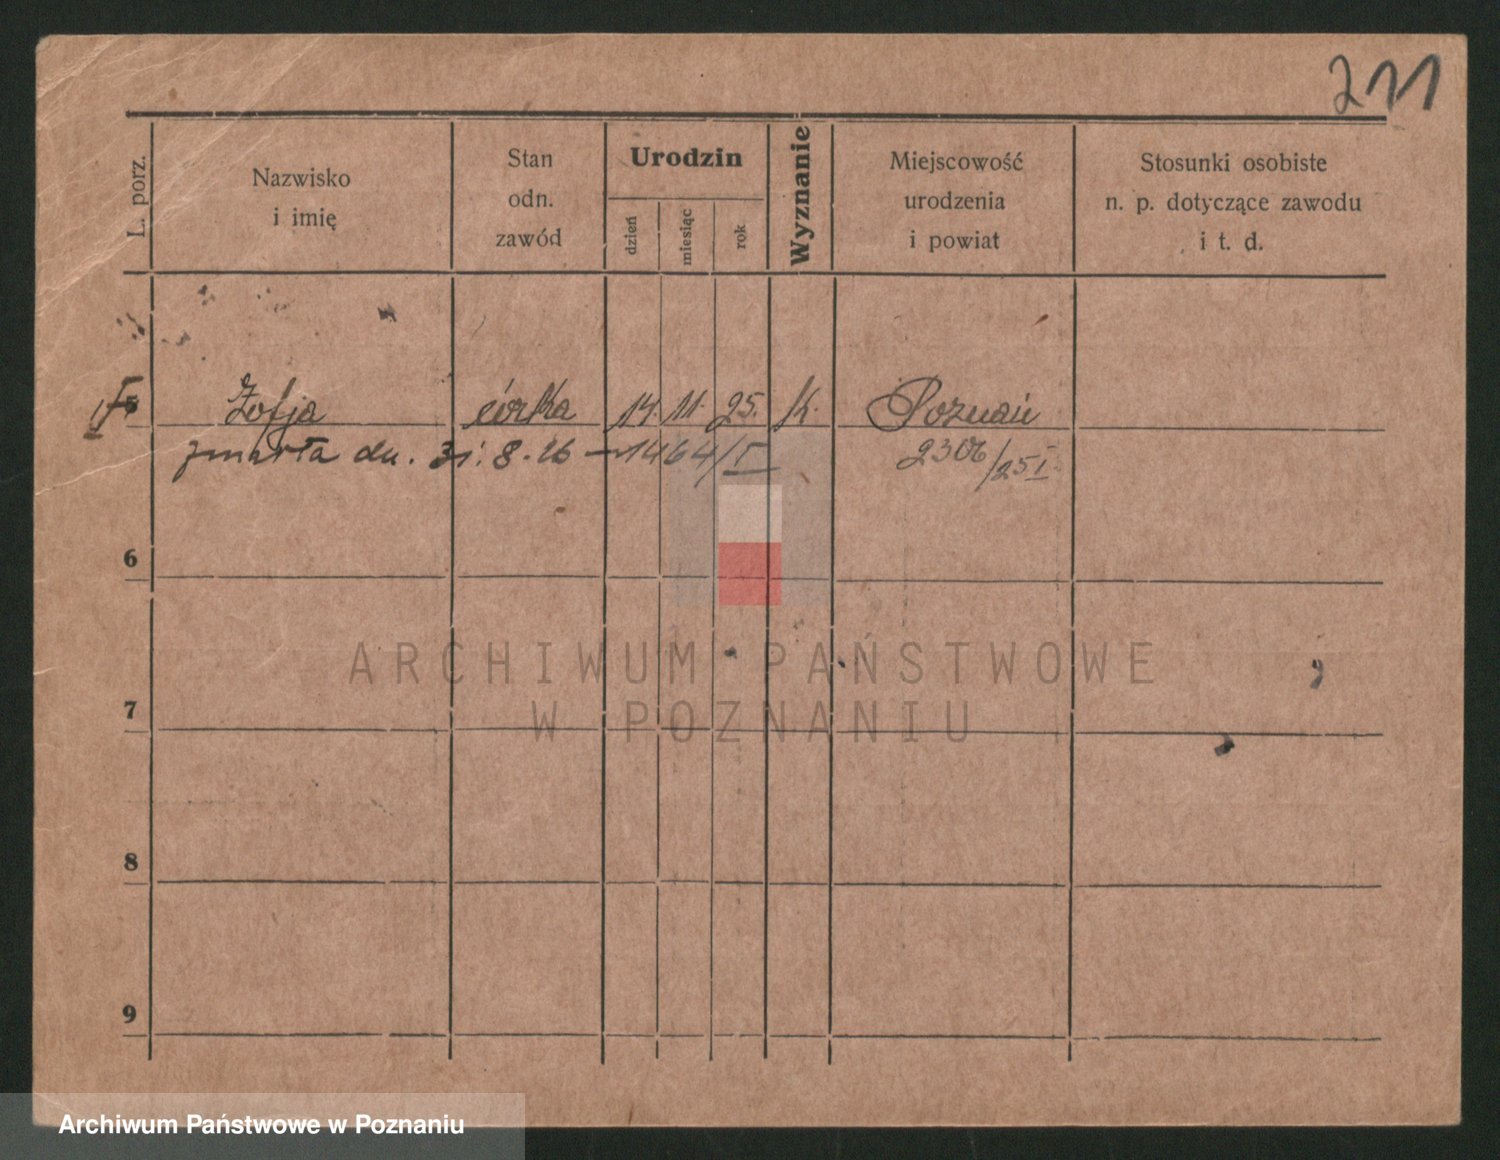 211
L. porz.
Nazwisko
i imię
Stan
odn.
zawód
Urodzin
dzień
miesiąc
rok
Wyznanie
Miejscowość
urodzenia
i powiat
Stosunki osobiste
n. p. dotyczące zawodu
i t. d.
5 Zofja córka 14. 11. 25. k. Poznań
zmarła dn. 31. 8. 26 – 1464/I
2306/25 I
6
7
8
9
ARCHIWUM PAŃSTWOWE
W POZNANIU
Archiwum Państwowe w Poznaniu